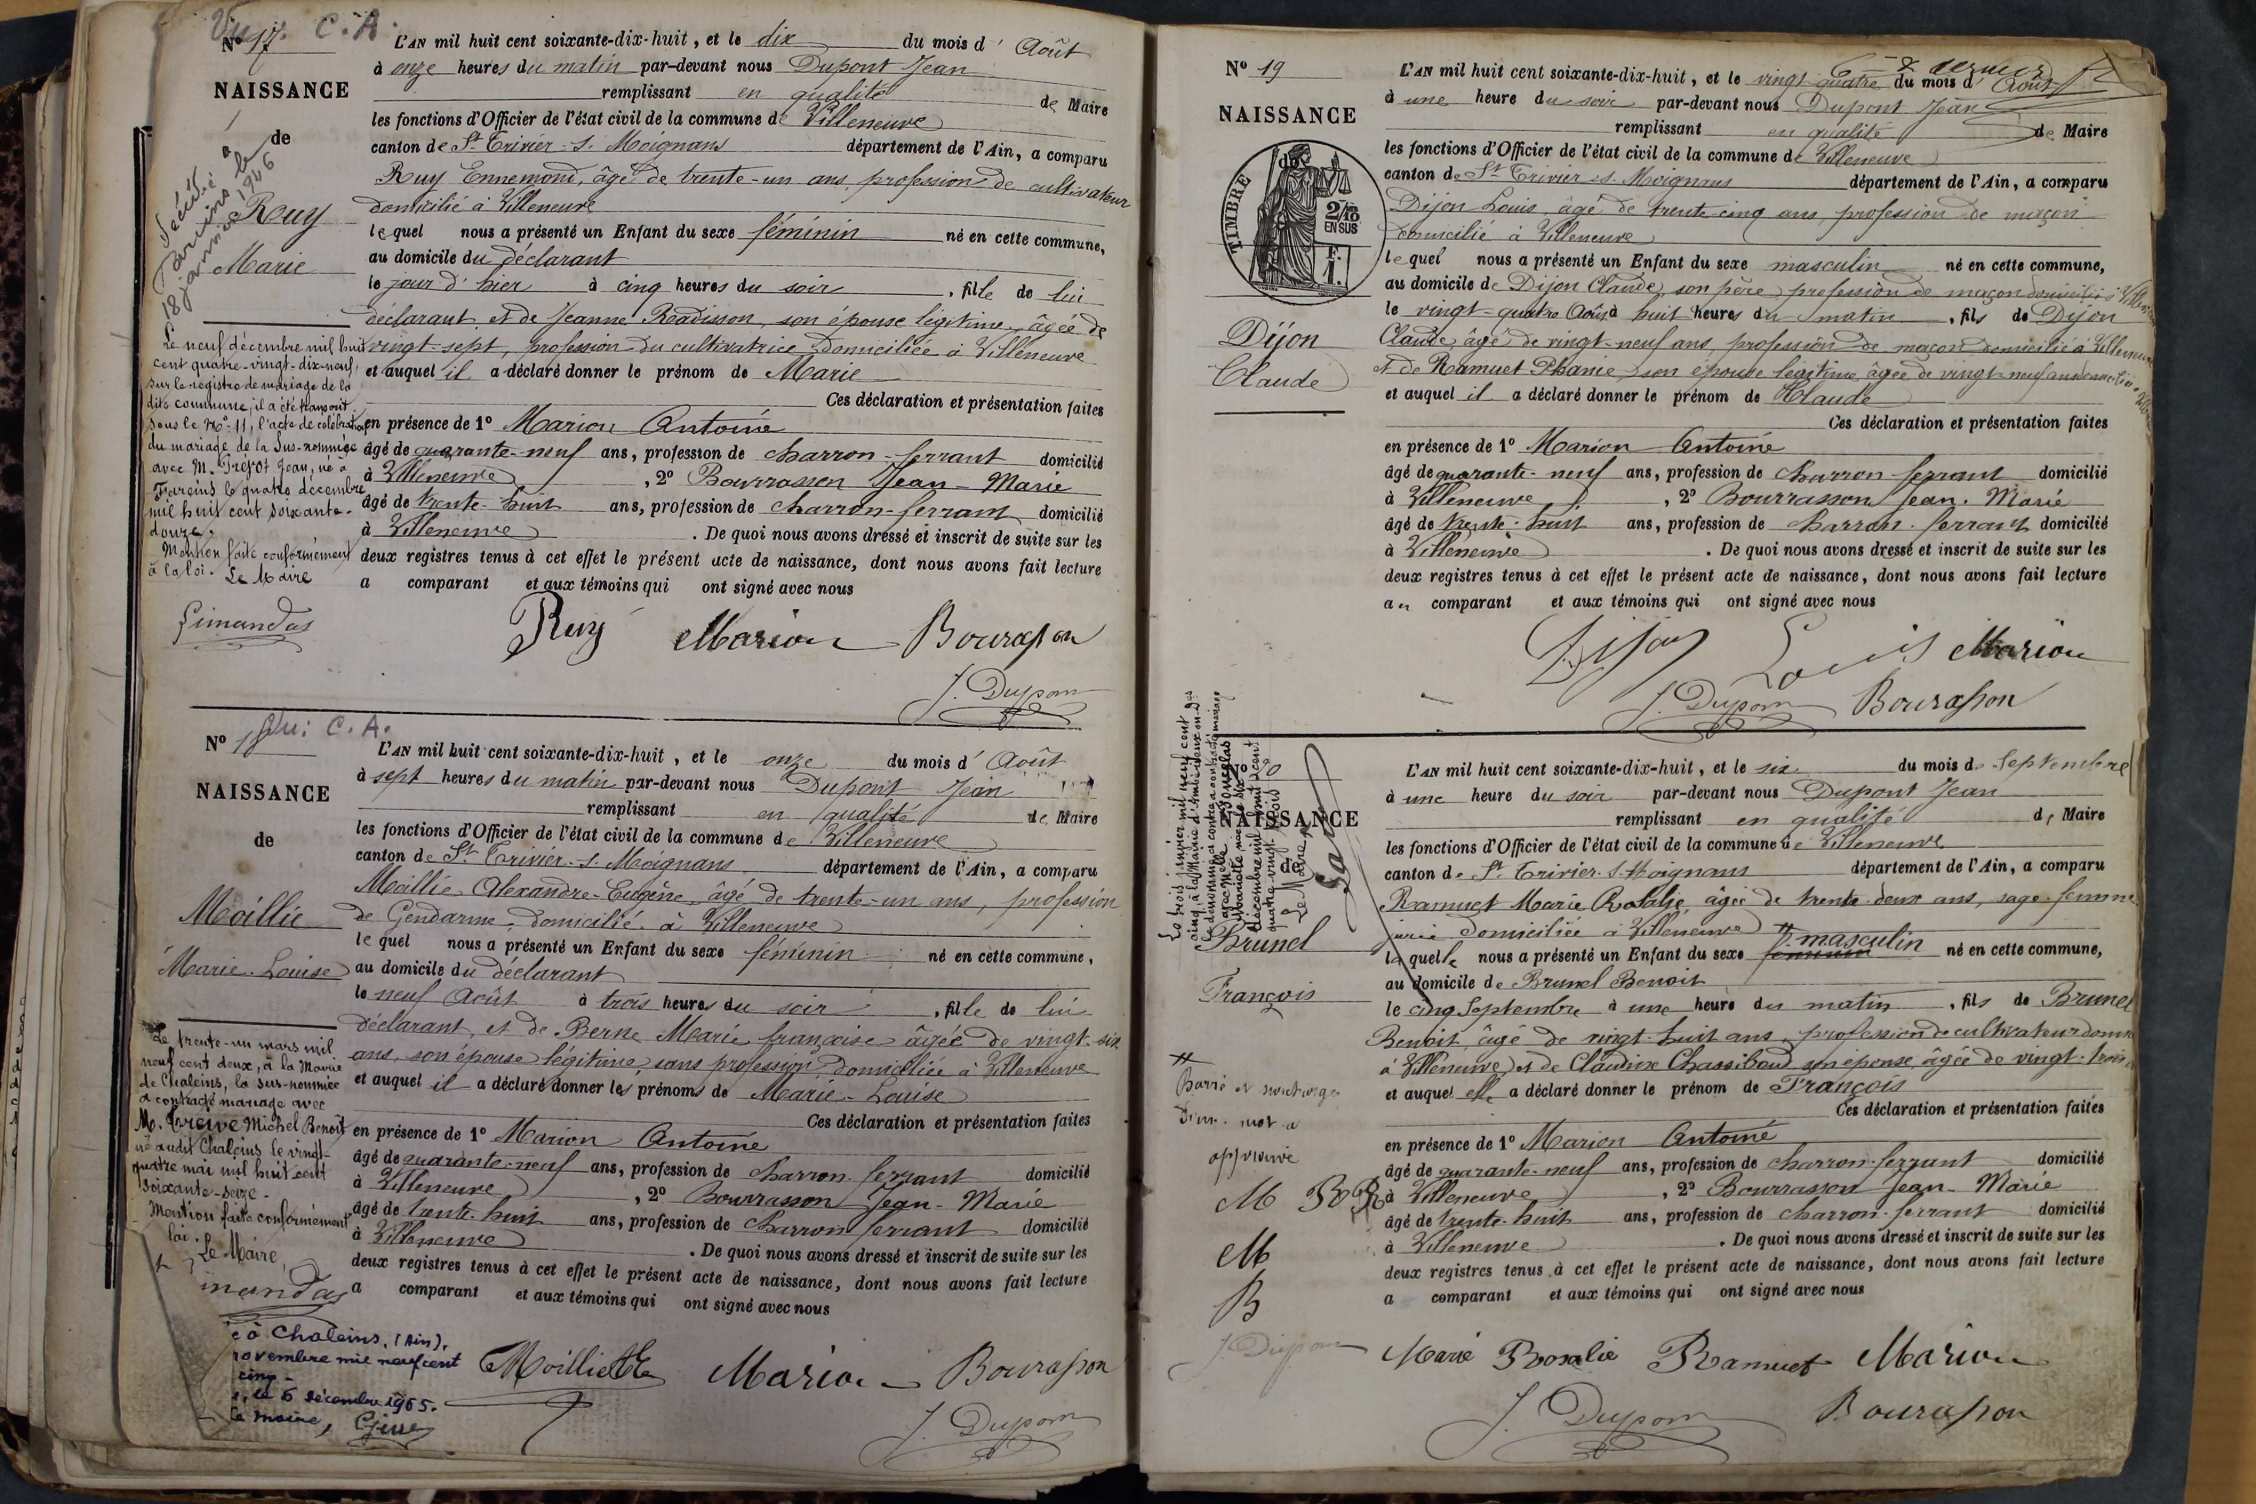 Vu: C. A.
Nº 17
NAISSANCE
de
Ruy
Marie
Décédée à
Fareins le
18 janvier 1946
Le neuf décembre mil huit
cent quatre-vingt-dix-neuf,
sur le registre de mariage de la
dite commune, il a été transcrit
sous le Nº 11, l'acte de célébration
du mariage de la sus-nommée
avec M. Jean, né à
Fareins le quatre décembre
mil huit cent soixante-
douze.
Mention faite conformément
à la loi. Le Maire
Limandas
L'AN mil huit cent soixante-dix-huit, et le dix du mois d' Août
à onze heures du matin par-devant nous Dupont Jean
remplissant en qualité de Maire
les fonctions d'Officier de l'état civil de la commune de Villeneuve
canton de St Trivier-s. Moignans département de l'Ain, a comparu
Ruy Ennemond, âgé de trente-un ans, profession de cultivateur
domicilié à Villeneuve
lequel nous a présenté un Enfant du sexe féminin né en cette commune,
au domicile du déclarant
le jour d'hier à cinq heures du soir, fille de lui
déclarant, et de Jeanne Radisson, son épouse légitime, âgée de
vingt-sept, profession du cultivatrice domiciliée à Villeneuve
et auquel il a déclaré donner le prénom de Marie
Ces déclaration et présentation faites
en présence de 1º Marion Antoine
âgé de quarante-neuf ans, profession de charron-ferrant domicilié
à Villeneuve, 2º Bourrasson Jean-Marie
âgé de trente-huit ans, profession de charron-ferrant domicilié
à Villeneuve. De quoi nous avons dressé et inscrit de suite sur les
deux registres tenus à cet effet le présent acte de naissance, dont nous avons fait lecture
a comparant et aux témoins qui ont signé avec nous
Ruy Marion Bourasson
J. Dupont
Vu: C. A.
Nº 18
NAISSANCE
de
Moillie
Marie-Louise
Le trente-un mars mil
neuf cent deux, à la Mairie
de Chaleins, la sus-nommée
a contracté mariage avec
M. Treive Michel Benoît
né audit Chaleins le vingt-
quatre mai mil huit cent
soixante-seize.
Mention faite conformément
loi.
Le Maire,
mandas
à Chaleins, (Ain),
novembre mil neuf cent
cinq
le 6 décembre 1965.
Le maire,
L'AN mil huit cent soixante-dix-huit, et le onze du mois d' Août
à sept heures du matin par-devant nous Dupont Jean
remplissant en qualité de Maire
les fonctions d'Officier de l'état civil de la commune de Villeneuve
canton de St Trivier-s. Moignans département de l'Ain, a comparu
Moillie Alexandre-Eugène, âgé de trente-un ans, profession
de Gendarme, domicilié à Villeneuve
lequel nous a présenté un Enfant du sexe féminin né en cette commune,
au domicile du déclarant
le neuf Août à trois heures du soir, fille de lui
déclarant, et de Berne Marie françoise âgée de vingt-six
ans, son épouse légitime, sans profession domiciliée à Villeneuve
et auquel il a déclaré donner les prénoms de Marie-Louise
Ces déclaration et présentation faites
en présence de 1º Marion Antoine
âgé de quarante-neuf ans, profession de charron-ferrant domicilié
à Villeneuve, 2º Bourrasson Jean-Marie
âgé de trente-huit ans, profession de charron ferrant domicilié
à Villeneuve. De quoi nous avons dressé et inscrit de suite sur les
deux registres tenus à cet effet le présent acte de naissance, dont nous avons fait lecture
a comparant et aux témoins qui ont signé avec nous
Moillie Marion Bourasson
J. Dupont
Nº 19
NAISSANCE
de
TIMBRE
2/10
EN SUS
Dijon
Claude
L'AN mil huit cent soixante-dix-huit, et le vingt quatre du mois d' Août
à une heure du soir par-devant nous Dupont Jean
remplissant en qualité de Maire
les fonctions d'Officier de l'état civil de la commune de Villeneuve
canton de St Trivier s. Moignans département de l'Ain, a comparu
Dijon Louis, âgé de trente cinq ans, profession de maçon
domicilié à Villeneuve
lequel nous a présenté un Enfant du sexe masculin né en cette commune,
au domicile de Dijon Claude, son père, profession de maçon domicilié à Villeneuve
le vingt-quatre Août à huit heures du matin, fils de Dijon
Claude, âgé de vingt-neuf ans, profession de maçon domicilié à Villeneuve
et de Ramuet Phanie, son épouse légitime, âgée de vingt-neuf ans
et auquel il a déclaré donner le prénom de Claude
Ces déclaration et présentation faites
en présence de 1º Marion Antoine
âgé de quarante-neuf ans, profession de charron ferrant domicilié
à Villeneuve, 2º Bourrasson Jean-Marie
âgé de trente-huit ans, profession de charron-ferrant domicilié
à Villeneuve. De quoi nous avons dressé et inscrit de suite sur les
deux registres tenus à cet effet le présent acte de naissance, dont nous avons fait lecture
au comparant et aux témoins qui ont signé avec nous
Dijon Louis Marion
J. Dupont Bourasson
Nº 20
NAISSANCE
de
Brunel
François
Barré et surchargé
d'un mot
approuvé
M R R
M
B
J. Dupont
L'AN mil huit cent soixante-dix-huit, et le six du mois de Septembre
à une heure du soir par-devant nous Dupont Jean
remplissant en qualité de Maire
les fonctions d'Officier de l'état civil de la commune de Villeneuve
canton de St Trivier s. Moignans département de l'Ain, a comparu
Ramuet Marie Rosalie, âgée de trente-deux ans, sage-femme
jurée domiciliée à Villeneuve
laquelle nous a présenté un Enfant du sexe masculin né en cette commune,
au domicile de Brunel Benoit
le cinq Septembre à une heure du matin, fils de Brunel
Benoit, âgé de vingt-huit ans, profession de cultivateur
à Villeneuve, et de Claudine Chassibout, son épouse, âgée de vingt-trois
et auquel elle a déclaré donner le prénom de François
Ces déclaration et présentation faites
en présence de 1º Marion Antoine
âgé de quarante-neuf ans, profession de charron-ferrant domicilié
à Villeneuve, 2º Bourrasson Jean-Marie
âgé de trente-huit ans, profession de charron-ferrant domicilié
à Villeneuve. De quoi nous avons dressé et inscrit de suite sur les
deux registres tenus à cet effet le présent acte de naissance, dont nous avons fait lecture
a comparant et aux témoins qui ont signé avec nous
Marie Rosalie Ramuet Marion
J. Dupont Bourasson